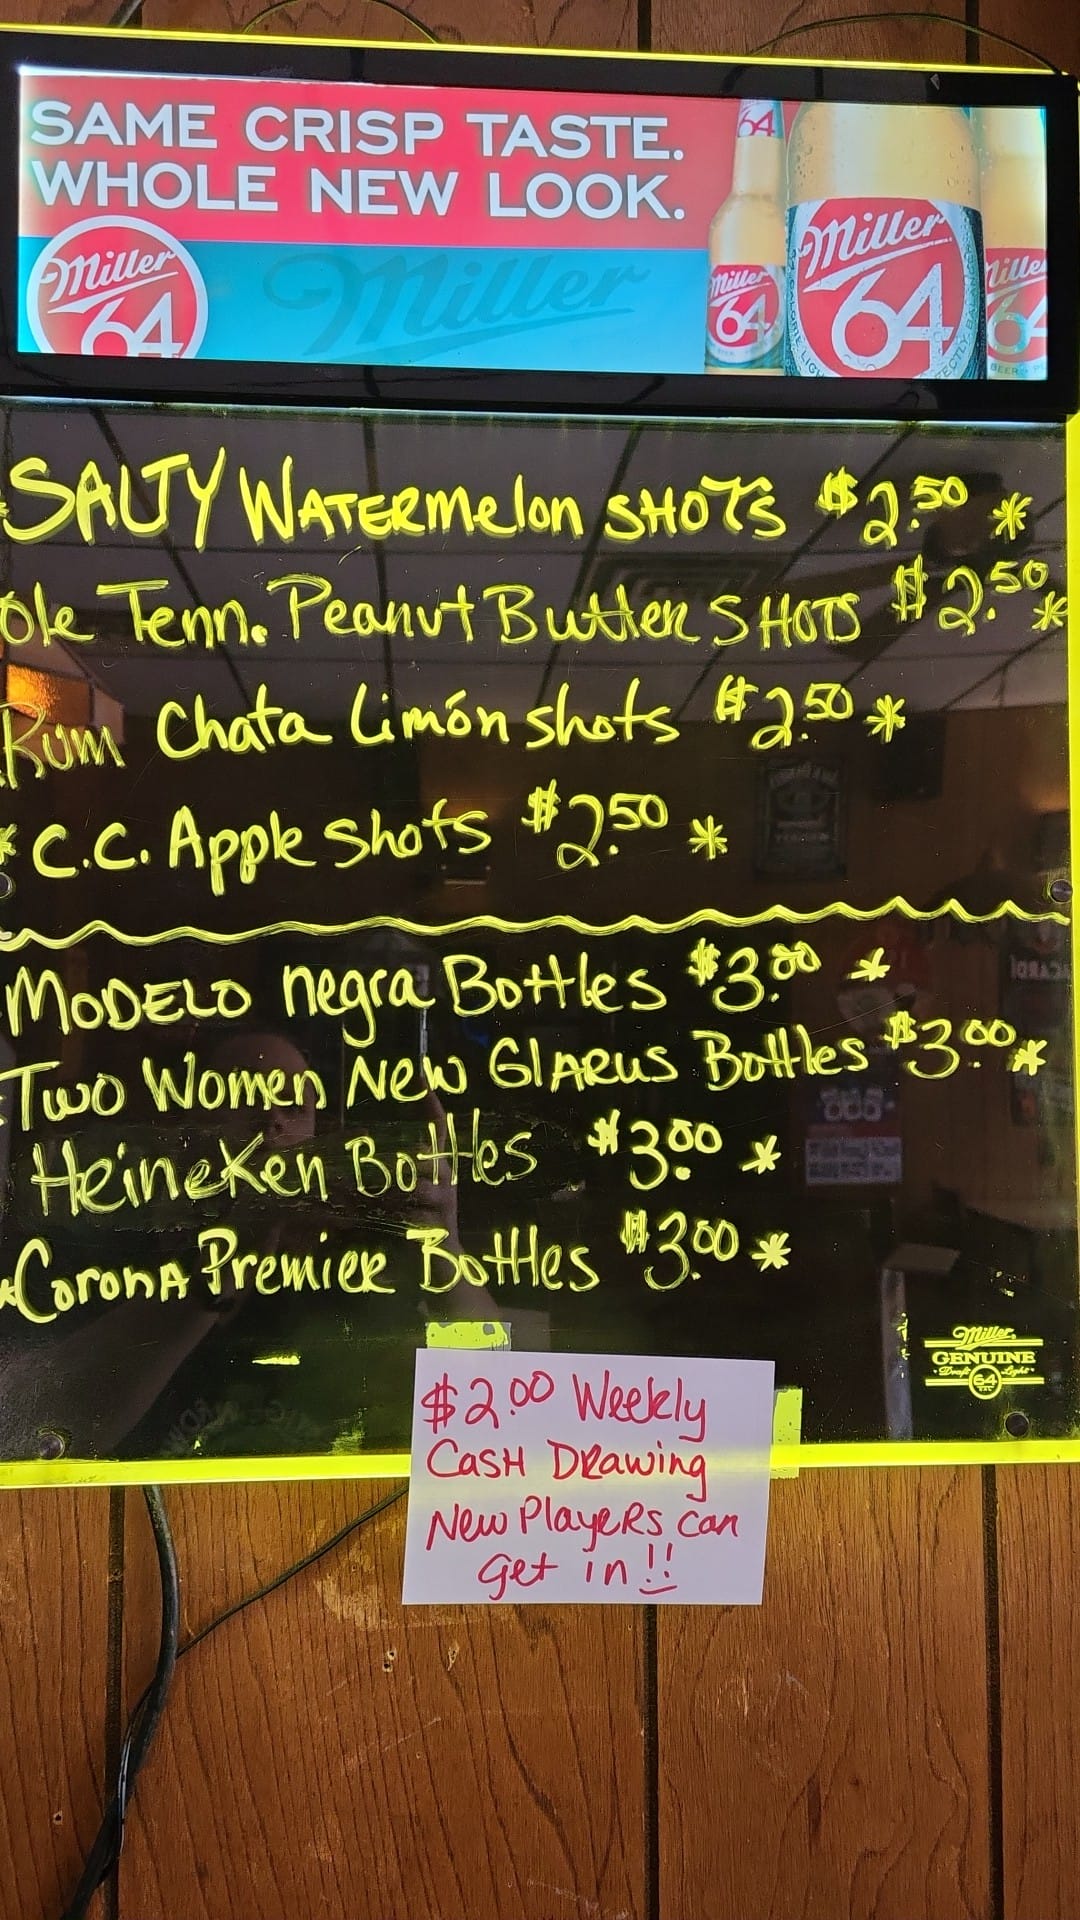 SAME CRISP TASTE.
WHOLE NEW LOOK.
Miller
64
Miller
64
Miller
64
Miller
64
Miller
64
SALTY WATERmelon SHOTS $2.50 *
Ole Tenn. Peanut Butter SHOTS $2.50 *
Rum Chata Limón shots $2.50 *
* C.C. Apple shots $2.50 *
MODELO negra Bottles $3.00 *
Two Women New GlARUS Bottles $3.00 *
HeineKen Bottles $3.00 *
CoronA Premier Bottles $3.00 *
Miller
GENUINE
Draft Light
64
CAL
$2.00 Weekly
CasH DRawing
New PlayeRs can
get in!!